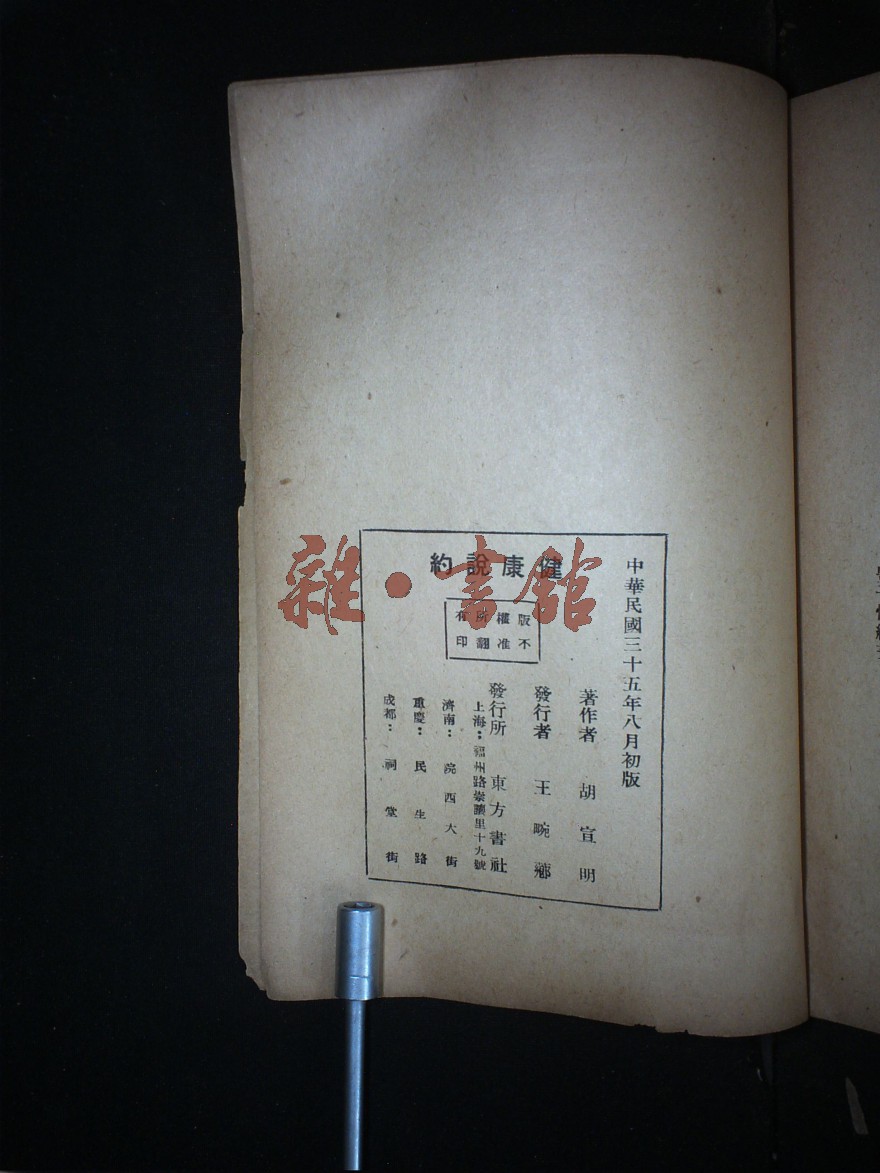 健康說約
版權所有
不准翻印
中華民國三十五年八月初版
著作者 胡宣明
發行者 王畹薌
發行所 東方書社
上海：福州路崇讓里十九號
濟南：院西大街
重慶：民生路
成都：祠堂街
雜·書館